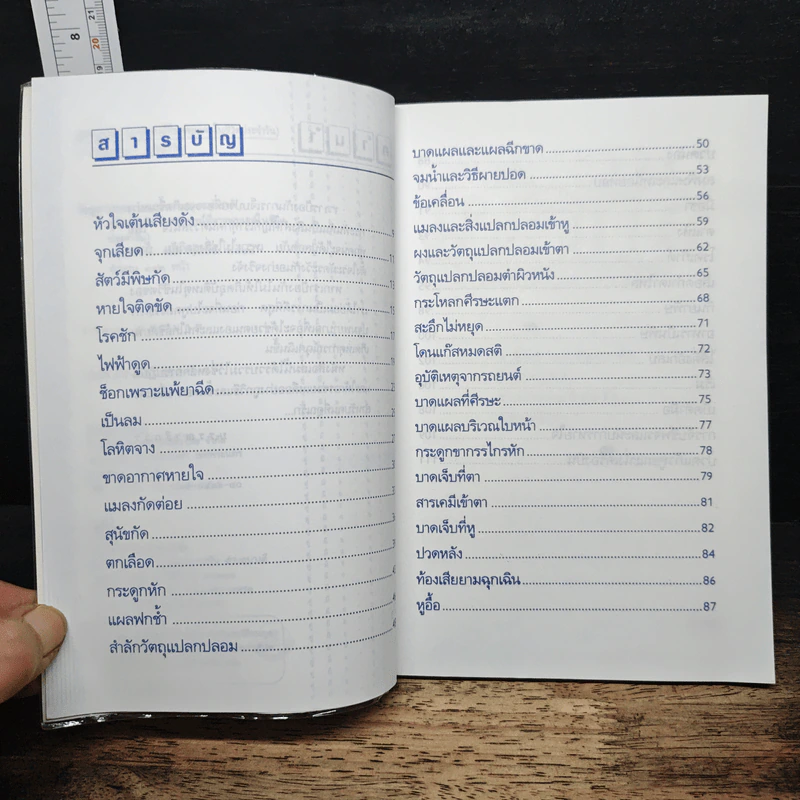 สารบัญ
หัวใจเต้นเสียงดัง
จุกเสียด
สัตว์มีพิษกัด
หายใจติดขัด
โรคชัก
ไฟฟ้าดูด
ช็อกเพราะแพ้ยาฉีด
เป็นลม
โลหิตจาง
ขาดอากาศหายใจ
แมลงกัดต่อย
สุนัขกัด
ตกเลือด
กระดูกหัก
แผลฟกช้ำ
สำลักวัตถุแปลกปลอม
บาดแผลและแผลฉีกขาด 50
จมน้ำและวิธีผายปอด 53
ข้อเคลื่อน 56
แมลงและสิ่งแปลกปลอมเข้าหู 59
ผงและวัตถุแปลกปลอมเข้าตา 62
วัตถุแปลกปลอมตำผิวหนัง 65
กระโหลกศีรษะแตก 68
สะอึกไม่หยุด 71
โดนแก๊สหมดสติ 72
อุบัติเหตุจากรถยนต์ 73
บาดแผลที่ศีรษะ 75
บาดแผลบริเวณใบหน้า 77
กระดูกขากรรไกรหัก 78
บาดเจ็บที่ตา 79
สารเคมีเข้าตา 81
บาดเจ็บที่หู 82
ปวดหลัง 84
ท้องเสียยามฉุกเฉิน 86
หูอื้อ 87
8
20
21